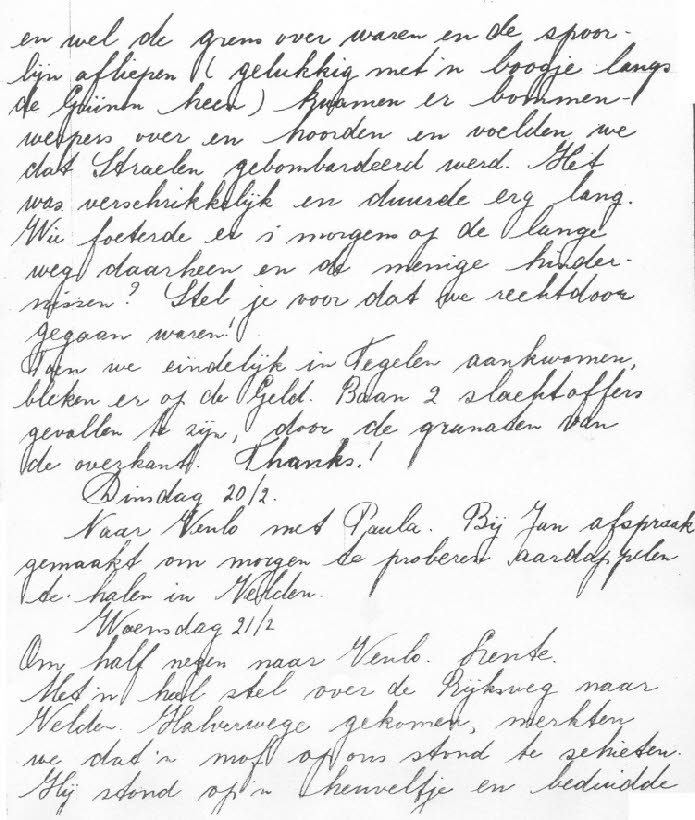 en wel de grens over waren en de spoor-
lijn afliepen (gelukkig met 'n boogje langs
de heen) kwamen er bommen-
werpers over en hoorden en voelden we
dat Straelen gebombardeerd werd. Het
was verschrikkelijk en duurde erg lang.
Wie foeterde er 's morgens op de lange
weg daarheen en de menige hinder-
nissen? Stel je voor dat we rechtdoor
gegaan waren!
Toen we eindelijk in Tegelen aankwamen,
bleken er op de Geld. Baan 2 slachtoffers
gevallen te zijn, door de granaten van
de overkant. Thanks!
Dinsdag 20/2.
Naar Venlo met Paula. Bij Jan afspraak
gemaakt om morgen te proberen aardappelen
te halen in Velden.
Woensdag 21/2
Om half negen naar Venlo. Lente.
Met 'n heel stel over de Rijksweg naar
Velden. Halverwege gekomen, merkten
we dat 'n mof op ons stond te schieten.
Hij stond op 'n heuveltje en beduidde